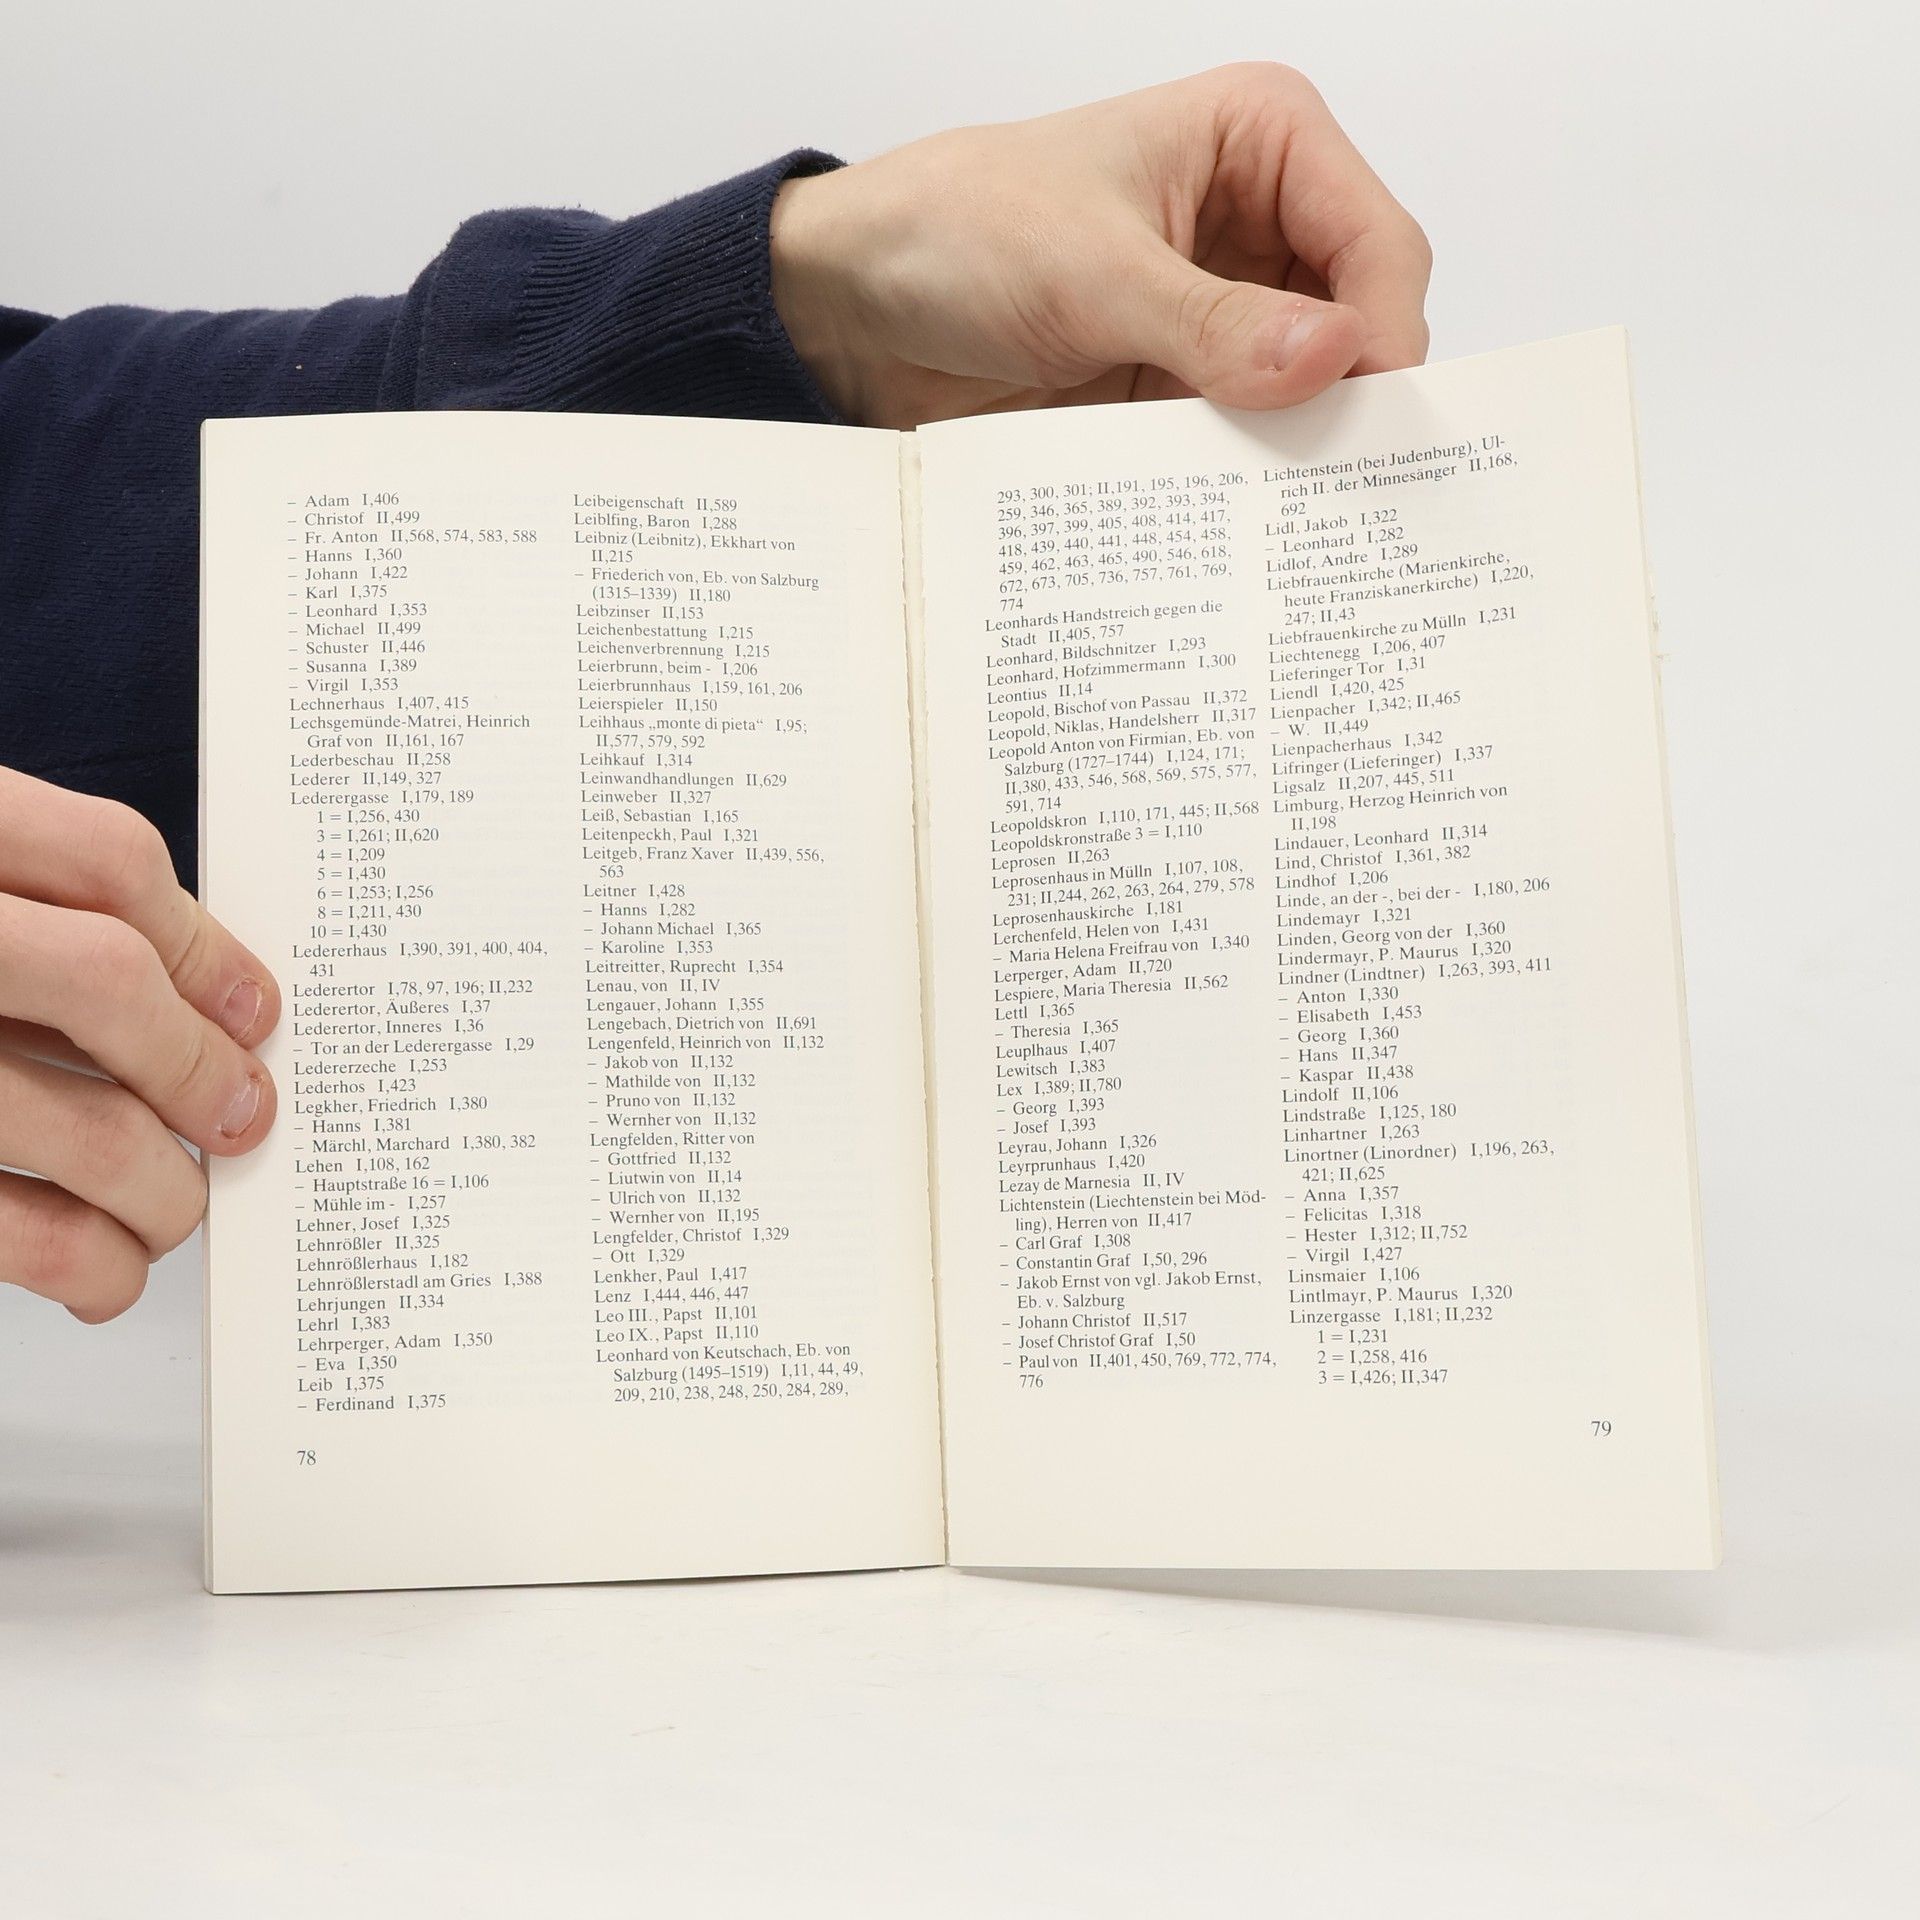 – Adam I,406
– Christof II,499
– Fr. Anton II,568, 574, 583, 588
– Hanns I,360
– Johann I,422
– Karl I,375
– Leonhard I,353
– Michael II,499
– Schuster II,446
– Susanna I,389
– Virgil I,353
Lechnerhaus I,407, 415
Lechsgemünde-Matrei, Heinrich
Graf von II,161, 167
Lederbeschau II,258
Lederer II,149, 327
Lederergasse I,179, 189
1 = I,256, 430
3 = I,261; II,620
4 = I,209
5 = I,430
6 = I,253; I,256
8 = I,211, 430
10 = I,430
Ledererhaus I,390, 391, 400, 404,
431
Lederertor I,78, 97, 196; II,232
Lederertor, Äußeres I,37
Lederertor, Inneres I,36
– Tor an der Lederergasse I,29
Ledererzeche I,253
Lederhos I,423
Legkher, Friedrich I,380
– Hanns I,381
– Märchl, Marchard I,380, 382
Lehen I,108, 162
– Hauptstraße 16 = I,106
– Mühle im - I,257
Lehner, Josef I,325
Lehnrößler II,325
Lehnrößlerhaus I,182
Lehnrößlerstadl am Gries I,388
Lehrjungen II,334
Lehrl I,383
Lehrperger, Adam I,350
– Eva I,350
Leib I,375
– Ferdinand I,375
Leibeigenschaft II,589
Leiblfing, Baron I,288
Leibniz (Leibnitz), Ekkhart von
II,215
– Friederich von, Eb. von Salzburg
(1315–1339) II,180
Leibzinser II,153
Leichenbestattung I,215
Leichenverbrennung I,215
Leierbrunn, beim - I,206
Leierbrunnhaus I,159, 161, 206
Leierspieler II,150
Leihhaus „monte di pieta“ I,95;
II,577, 579, 592
Leihkauf I,314
Leinwandhandlungen II,629
Leinweber II,327
Leiß, Sebastian I,165
Leitenpeckh, Paul I,321
Leitgeb, Franz Xaver II,439, 556,
563
Leitner I,428
– Hanns I,282
– Johann Michael I,365
– Karoline I,353
Leitreitter, Ruprecht I,354
Lenau, von II, IV
Lengauer, Johann I,355
Lengebach, Dietrich von II,691
Lengenfeld, Heinrich von II,132
– Jakob von II,132
– Mathilde von II,132
– Pruno von II,132
– Wernher von II,132
Lengfelden, Ritter von
– Gottfried II,132
– Liutwin von II,14
– Ulrich von II,132
– Wernher von II,195
Lengfelder, Christof I,329
– Ott I,329
Lenkher, Paul I,417
Lenz I,444, 446, 447
Leo III., Papst II,101
Leo IX., Papst II,110
Leonhard von Keutschach, Eb. von
Salzburg (1495–1519) I,11, 44, 49,
209, 210, 238, 248, 250, 284, 289,
78
293, 300, 301; II,191, 195, 196, 206,
259, 346, 365, 389, 392, 393, 394,
396, 397, 399, 405, 408, 414, 417,
418, 439, 440, 441, 448, 454, 458,
459, 462, 463, 465, 490, 546, 618,
672, 673, 705, 736, 757, 761, 769,
774
Leonhards Handstreich gegen die
Stadt II,405, 757
Leonhard, Bildschnitzer I,293
Leonhard, Hofzimmermann I,300
Leontius II,14
Leopold, Bischof von Passau II,372
Leopold, Niklas, Handelsherr II,317
Leopold Anton von Firmian, Eb. von
Salzburg (1727–1744) I,124, 171;
II,380, 433, 546, 568, 569, 575, 577,
591, 714
Leopoldskron I,110, 171, 445; II,568
Leopoldskronstraße 3 = I,110
Leprosen II,263
Leprosenhaus in Mülln I,107, 108,
231; II,244, 262, 263, 264, 279, 578
Leprosenhauskirche I,181
Lerchenfeld, Helen von I,431
– Maria Helena Freifrau von I,340
Lerperger, Adam II,720
Lespiere, Maria Theresia II,562
Lettl I,365
– Theresia I,365
Leuplhaus I,407
Lewitsch I,383
Lex I,389; II,780
– Georg I,393
– Josef I,393
Leyrau, Johann I,326
Leyrprunhaus I,420
Lezay de Marnesia II, IV
Lichtenstein (Liechtenstein bei Möd-
ling), Herren von II,417
– Carl Graf I,308
– Constantin Graf I,50, 296
– Jakob Ernst von vgl. Jakob Ernst,
Eb. v. Salzburg
– Johann Christof II,517
– Josef Christof Graf I,50
– Paul von II,401, 450, 769, 772, 774,
776
Lichtenstein (bei Judenburg), Ul-
rich II. der Minnesänger II,168,
692
Lidl, Jakob I,322
– Leonhard I,282
Lidlof, Andre I,289
Liebfrauenkirche (Marienkirche,
heute Franziskanerkirche) I,220,
247; II,43
Liebfrauenkirche zu Mülln I,231
Liechtenegg I,206, 407
Lieferinger Tor I,31
Liendl I,420, 425
Lienpacher I,342; II,465
– W. II,449
Lienpacherhaus I,342
Lifringer (Lieferinger) I,337
Ligsalz II,207, 445, 511
Limburg, Herzog Heinrich von
II,198
Lindauer, Leonhard II,314
Lind, Christof I,361, 382
Lindhof I,206
Linde, an der -, bei der - I,180, 206
Lindemayr I,321
Linden, Georg von der I,360
Lindermayr, P. Maurus I,320
Lindner (Lindtner) I,263, 393, 411
– Anton I,330
– Elisabeth I,453
– Georg I,360
– Hans II,347
– Kaspar II,438
Lindolf II,106
Lindstraße I,125, 180
Linhartner I,263
Linortner (Linordner) I,196, 263,
421; II,625
– Anna I,357
– Felicitas I,318
– Hester I,312; II,752
– Virgil I,427
Linsmaier I,106
Lintlmayr, P. Maurus I,320
Linzergasse I,181; II,232
1 = I,231
2 = I,258, 416
3 = I,426; II,347
79